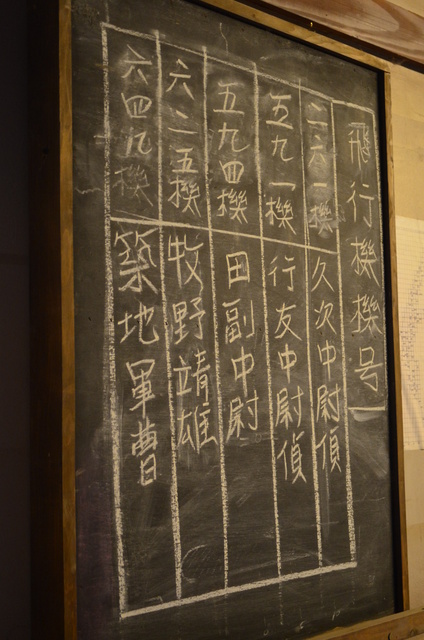 飛行機機号
二六一機 久次中尉偵
五九一機 行友中尉偵
五九四機 田副中尉
六二五機 牧野靖雄
六四九機 築地軍曹